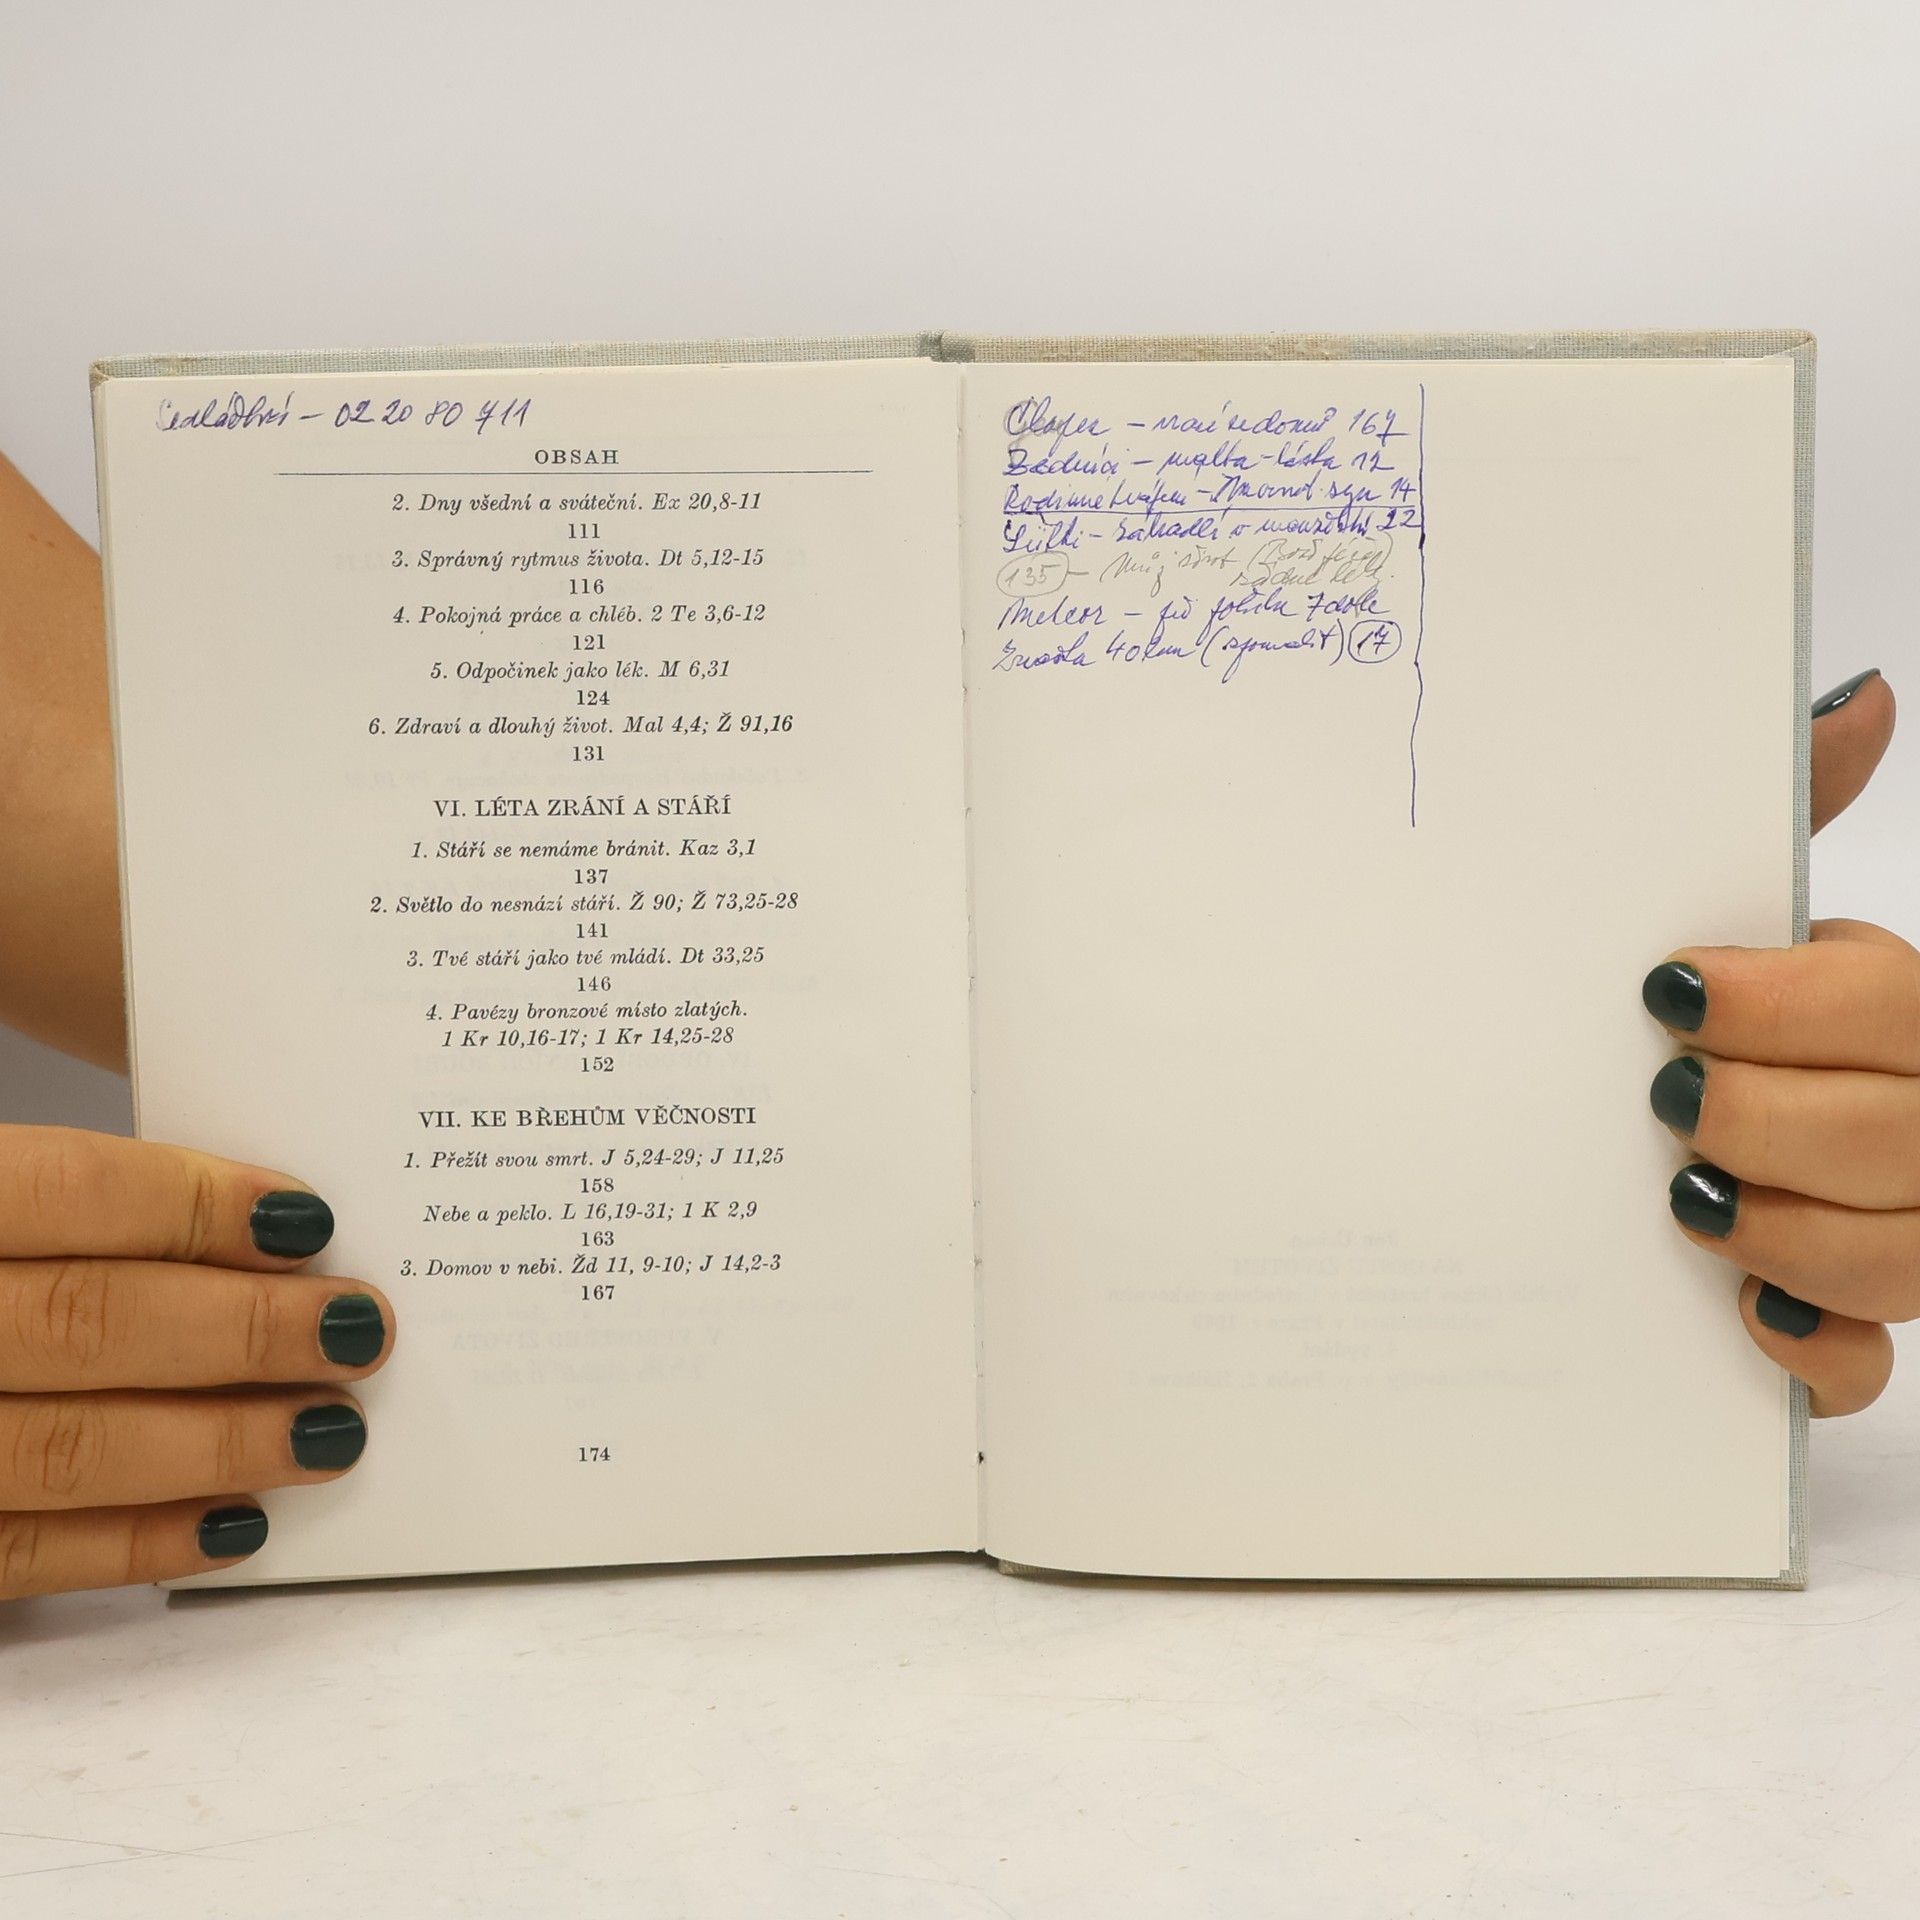 – 02 20 80 711
OBSAH
2. Dny všední a sváteční. Ex 20,8-11
111
3. Správný rytmus života. Dt 5,12-15
116
4. Pokojná práce a chléb. 2 Te 3,6-12
121
5. Odpočinek jako lék. M 6,31
124
6. Zdraví a dlouhý život. Mal 4,4; Ž 91,16
131
VI. LÉTA ZRÁNÍ A STÁŘÍ
1. Stáří se nemáme bránit. Kaz 3,1
137
2. Světlo do nesnází stáří. Ž 90; Ž 73,25-28
141
3. Tvé stáří jako tvé mládí. Dt 33,25
146
4. Pavézy bronzové místo zlatých.
1 Kr 10,16-17; 1 Kr 14,25-28
152
VII. KE BŘEHŮM VĚČNOSTI
1. Přežít svou smrt. J 5,24-29; J 11,25
158
Nebe a peklo. L 16,19-31; 1 K 2,9
163
3. Domov v nebi. Žd 11, 9-10; J 14,2-3
167
174
Chlapec – vrací se domů 167
Zedníci – malta - láska 12
– syn 14
– zábradlí v 22
135 – Můj
Meteor – 7 dole
40 km 17